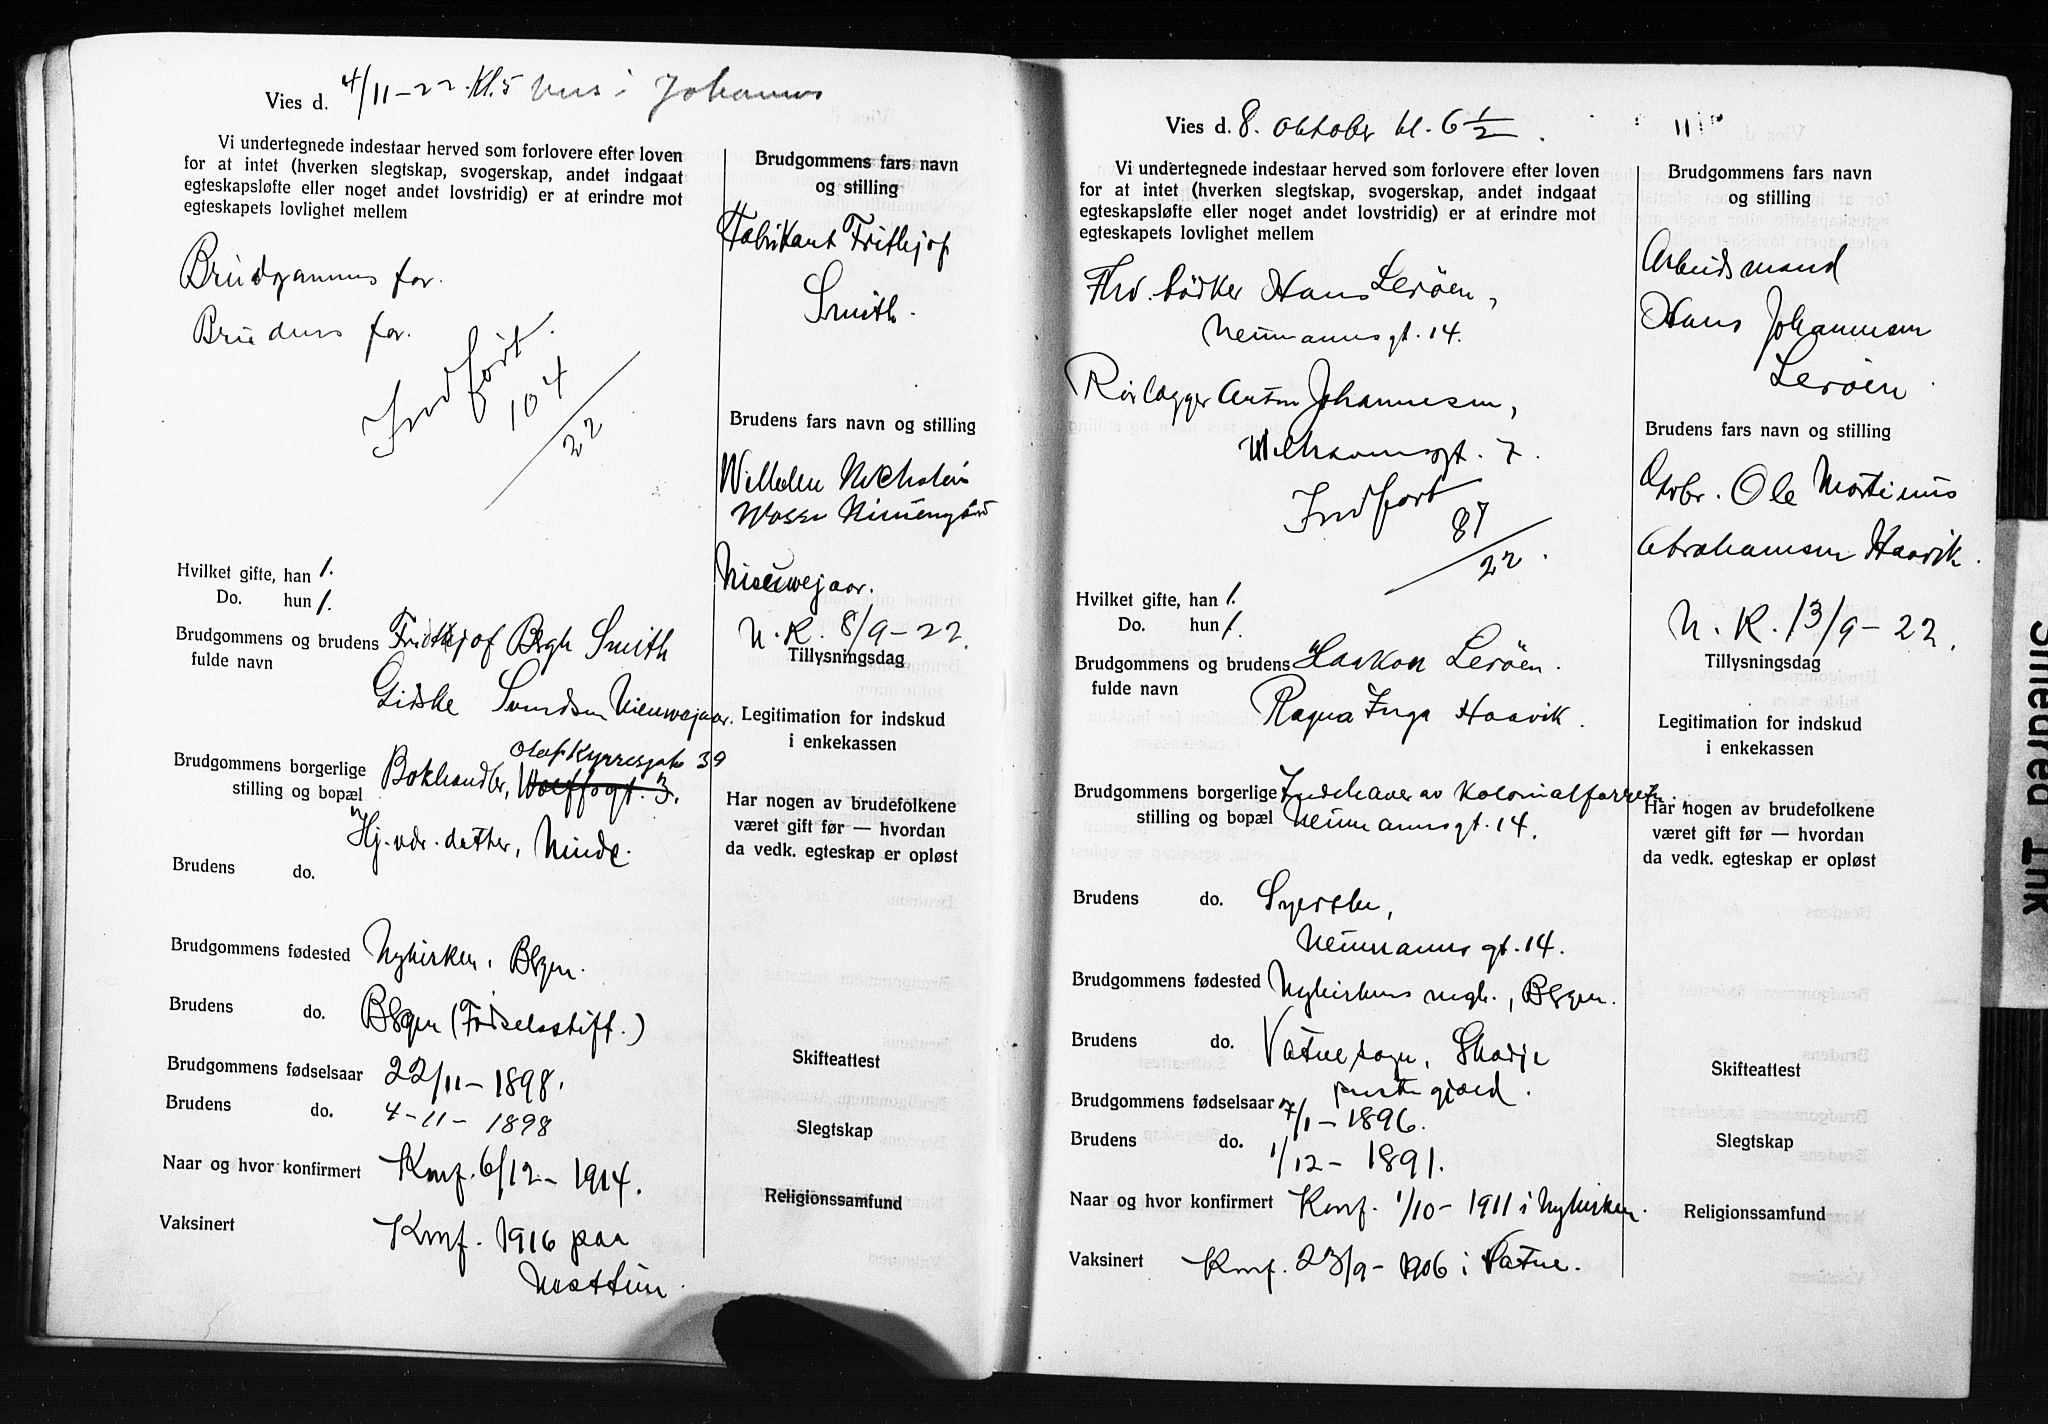 Vies d. 4/11-22. Kl. 5 i Johannes
Vi undertegnede indestaar herved som forlovere efter loven
for at intet (hverken slegtskap, svogerskap, andet indgaat
egteskapsløfte eller noget andet lovstridig) er at erindre mot
egteskapets lovlighet mellem
Brudgommens far.
Brudens far.
Indført.
104
22
Hvilket gifte, han 1.
Do. hun 1.
Brudgommens og brudens Fridtjof Bergh Smith
fulde navn
Gidske Svendsen Nieuwejaar.
Olaf Kyrresgate 39
Brudgommens borgerlige Bokhandler, Wolffsgt. 3.
stilling og bopæl
Hj. vær. datter, Minde.
Brudens do.
Brudgommens fødested Nykirken, Bergen.
Brudens do. Bergen (Fødselsstift.)
Brudgommens fødselsaar 22/11-1898.
Brudens do. 4-11-1898
Naar og hvor konfirmert Konf. 6/12-1914.
Vaksinert Konf. 1916 paa
Nesttun.
Brudgommens fars navn
og stilling
Fabrikant Frithjof
Smith.
Brudens fars navn og stilling
Wilhelm
Nieuwejaar.
N. K. 8/9-22.
Tillysningsdag
Legitimation for indskud
i enkekassen
Har nogen av brudefolkene
været gift før — hvordan
da vedk. egteskap er opløst
Skifteattest
Slegtskap
Religionssamfund
Vies d. 8. oktober kl. 6 1/2.
Vi undertegnede indestaar herved som forlovere efter loven
for at intet (hverken slegtskap, svogerskap, andet indgaat
egteskapsløfte eller noget andet lovstridig) er at erindre mot
egteskapets lovlighet mellem
Fhv. bødker Hans Lerøen,
Neumannsgt. 14.
Rørlægger Anton Johannesen,
Welhavensgt. 7.
Indført
87
22.
Hvilket gifte, han 1.
Do. hun 1.
Brudgommens og brudens Haakon Lerøen.
fulde navn
Ragna Inga Haavik.
Brudgommens borgerlige Indehaver av Kolonialforretn.,
stilling og bopæl Neumannsgt. 14.
Brudens do. Syerske,
Neumannsgt. 14.
Brudgommens fødested Nykirkens mgh., Bergen.
Brudens do. Vatne sogn, Skodje
prestegjæld.
Brudgommens fødselsaar 7/1-1896.
Brudens do. 1/12-1891.
Naar og hvor konfirmert Konf. 1/10-1911 i Nykirken.
Vaksinert Konf. 23/9-1906 i Vatne.
Brudgommens fars navn
og stilling
Arbeidsmand
Hans Johannesen
Lerøen.
Brudens fars navn og stilling
Gbr. Ole Martinus
Abrahamsen Haavik.
N. K. 13/9-22.
Tillysningsdag
Legitimation for indskud
i enkekassen
Har nogen av brudefolkene
været gift før — hvordan
da vedk. egteskap er opløst
Skifteattest
Slegtskap
Religionssamfund